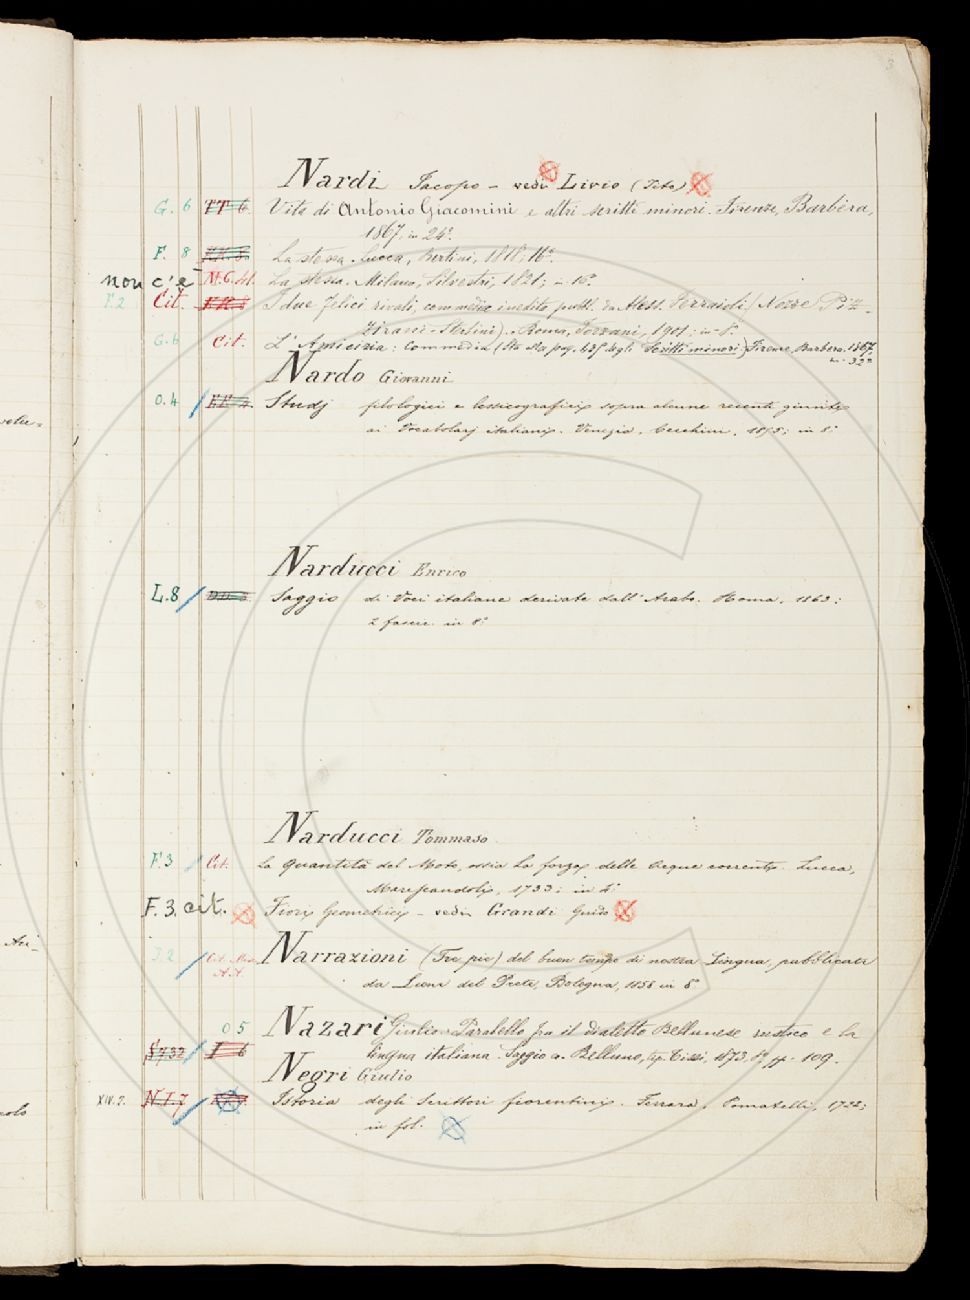 3
Nardi Jacopo - vedi Livio (Tito)
G. 6 Vita di Antonio Giacomini e altri scritti minori. Firenze, Barbèra,
1867, in 24°.
F. 8 La stessa. Lucca, Bertini, 1818, 16°.
non c'è M.C. La stessa. Milano, Silvestri, 1821; in 16°.
F.2 Cit. I due felici rivali, commedia inedita pubbl. da Aless. Ferraioli. (Nozze Piz-
zirani-Sterlini). Roma, Forzani, 1901; in 8°.
G.6 Cit. L'Amicizia: Commedia (Sta alla pag. degli Scritti minori) Firenze, Barbèra. 1867.
in 32°
Nardo Giovanni
O.4 Studj filologici e lessicografici sopra alcune recenti giunte
ai Vocabolarj italiani. Venezia, Cecchini, 1855; in 8°
Narducci Enrico
L.8 Saggio di Voci italiane derivate dall'Arabo. Roma, 1863;
2 fascic. in 8°
Narducci Tommaso
F.3 Cit. La Quantità del Moto, ossia La forza delle Acque correnti. Lucca,
Marescandoli, 1733; in 4°
F.3. cit. Fiori Geometrici - vedi Grandi Guido
Narrazioni (Tre pie) del buon tempo di nostra Lingua, pubblicate
da Leone del Prete, Bologna, 1858 in 8°
O 5 Nazari Giulio. Parallelo fra il dialetto Bellunese rustico e la
lingua italiana. Saggio. Belluno, tip. Tissi, 1873, 8°, pp. 109.
Negri Giulio
XIV.2. N.I.7 Istoria degli Scrittori fiorentini. Ferrara, Pomatelli, 1722;
in fol.